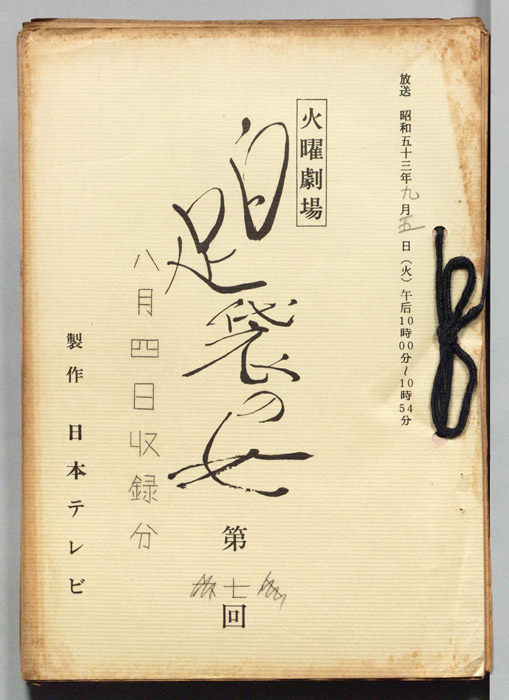 放送 昭和五十三年九月五日（火）午后10時00分～10時54分
火曜劇場
白足袋の女
第七回
八月四日収録分
製作 日本テレビ